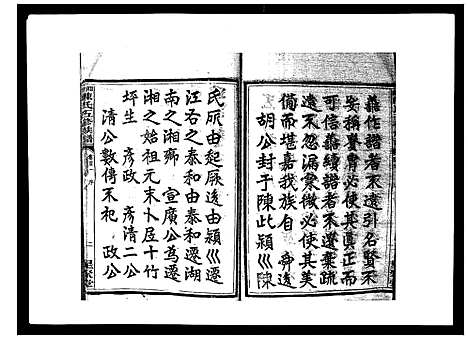 蓋作譜者不遺引名賢不
妄稱貴胄必使其真正而
可信蓋續譜者不遺棄疏
遠不忽漏寡微必使其美
備而堪嘉我族自 舜遠
胡公封于陳此潁川陳
氏所由起厥後由潁川遷
江右之泰和由泰和遷湖
南之湘鄉 宣廣公為遷
湘之始祖元末卜居十竹
坪生 彥政 彥清二公
清公數傳不祀 政公
陳氏五修族譜
二